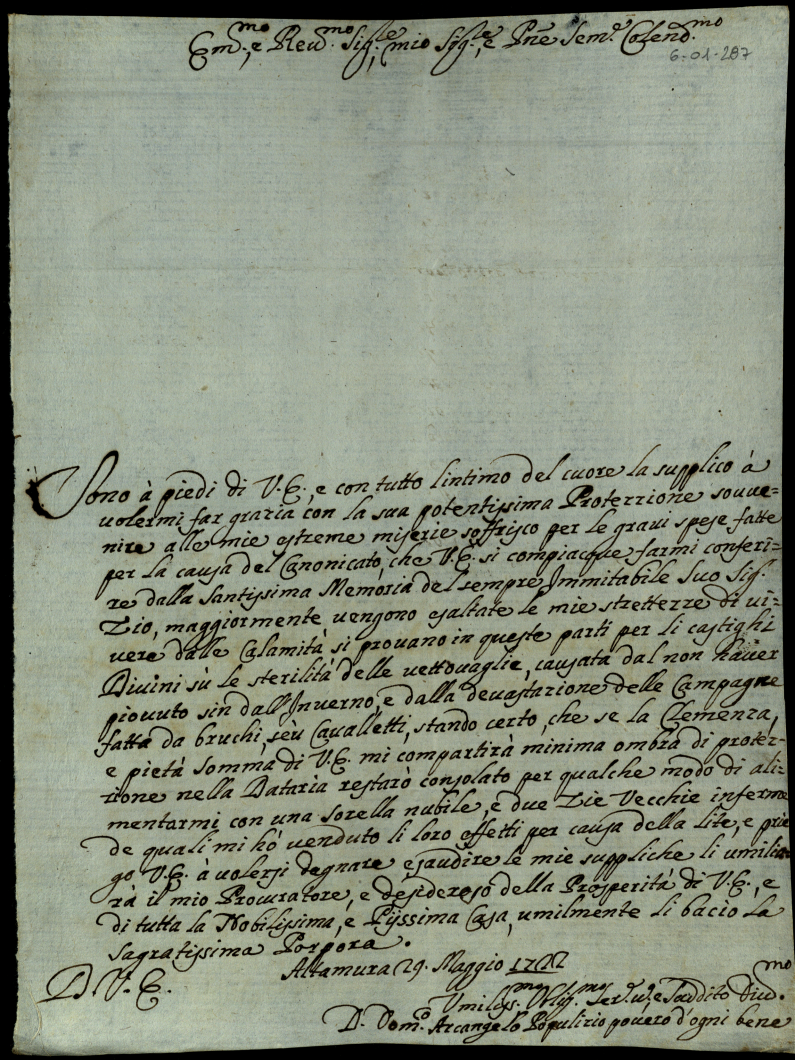 Em.mo, e Reu.mo Sig.re, mio Sig.re, e Pñe Sem.e Colend.mo
6-01-287
Sono à piedi di V.E., e con tutto lintimo del cuore la supplico à
volermi far grazia con la sua potentissima Protezzione souue=
nire alle mie estreme miserie soffrisco per le graui spese fatte
per la causa del Canonicato, che V.E. si compiacque farmi conferi=
re dalla Santissima Memoria del sempre Immitabile Suo Sig.r
Zio, maggiormente uengono esaltate le mie strettezze di ui=
uere dalle Calamità si prouano in queste parti per li castighi
Diuini sù le sterilità delle uettouaglie, causata dal non hauer
piouuto sin dall'Inuerno, e dalla deuastazione delle Campagne
fatta da bruchi, seù Caualletti, stando certo, che se la Clemenza,
e pietà somma di V.E. mi compartirà minima ombra di protez-
zione nella Dataria restarò consolato per qualche modo di ali=
mentarmi con una sorella nubile, e due Zie Vecchie inferme
de quali mi hò uenduto li loro effetti per causa della lite, e prie
go V.E. à uolersi degnare esaudire le mie suppliche li umilia
rà il mio Procuratore, e desideroso della Prosperità di V.E., e
di tutta la Nobilissima, e Pijssima Casa, umilmente li bacio la
Sagratissima Porpora.
Altamura 29. Maggio
D. V. E.
Umiliss.mo Oblig.mo Ser.u., e Suddito Diu.mo
D. Dom.o Arcangelo Populizio pouero d'ogni bene